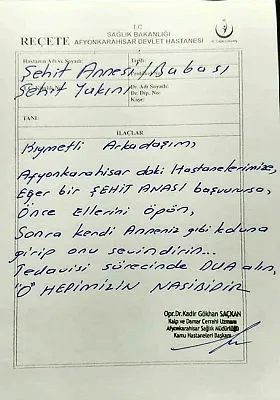 T.C.
SAĞLIK BAKANLIĞI
REÇETE AFYONKARAHİSAR DEVLET HASTANESİ
Hastanın Adı ve Soyadı: Tarih:
Şehit Annesi/Babası
Şehit Yakını
Dr. Adı Soyadı:
Dr. Dip. No:
Kaşe:
TANI:
İLAÇLAR
Kıymetli Arkadaşım,
Afyonkarahisar daki Hastanelerimize,
Eğer bir ŞEHİT ANASI başvurursa,
Önce Ellerini Öpün,
Sonra kendi Anneniz gibi koluna
girip onu sevindirin...
Tedavisi sürecinde DUA alın,
"O" HEPİMİZİN NASİBİDİR
Opr.Dr.Kadir Gökhan SAÇKAN
Kalp ve Damar Cerrahi Uzmanı
Afyonkarahisar Sağlık Müdürlüğü
Kamu Hastaneleri Başkanı